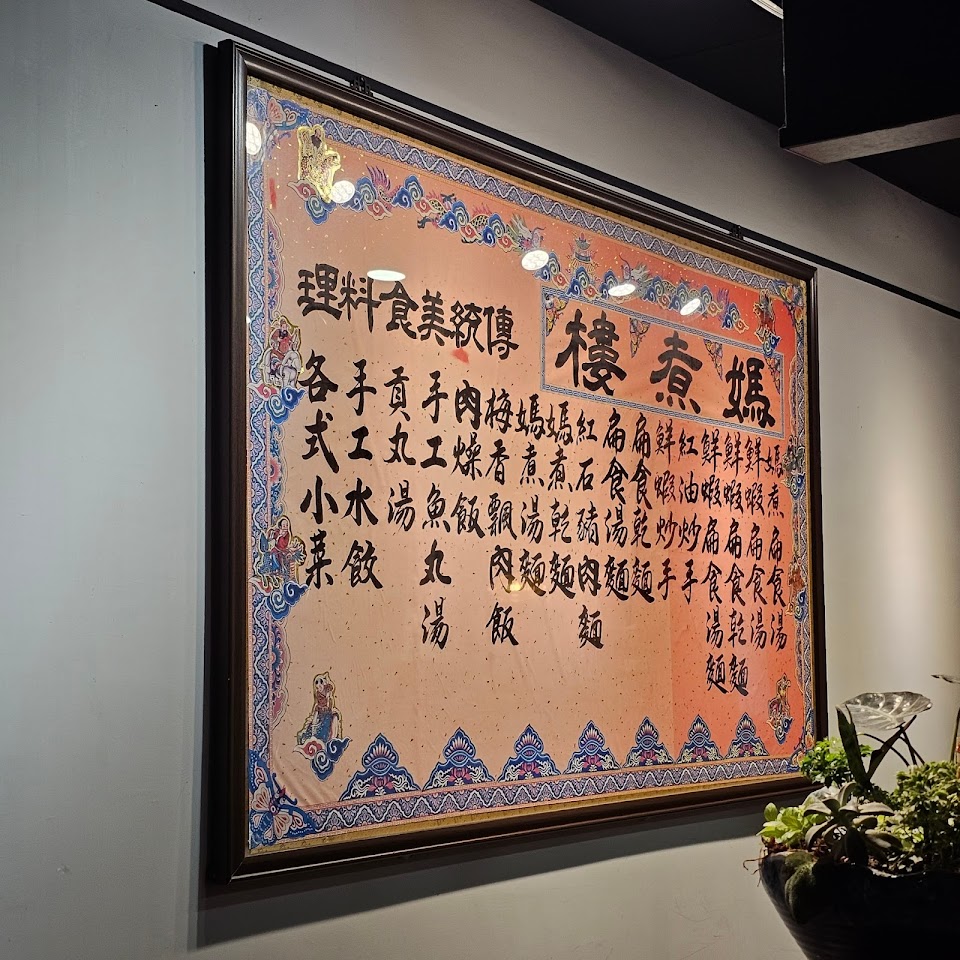 媽煮樓
媽煮扁食湯
鮮蝦扁食湯
鮮蝦扁食乾麵
鮮蝦扁食湯麵
紅油炒手
鮮蝦炒手
扁食乾麵
扁食湯麵
紅石豬肉麵
媽煮乾麵
媽煮湯麵
傳統美食料理
梅香飄肉飯
肉燥飯
手工魚丸湯
貢丸湯
手工水餃
各式小菜